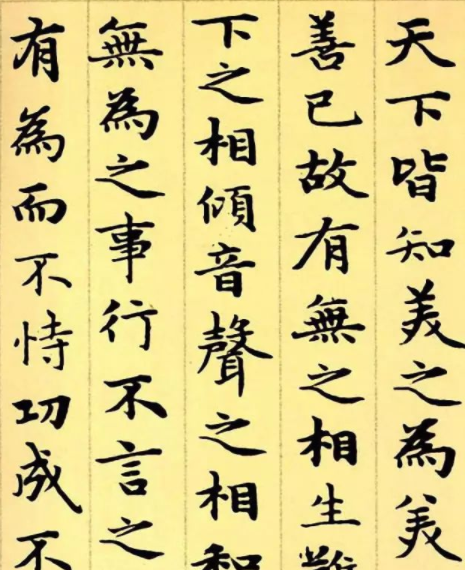 天下皆知美之為美
善已故有無之相生難
下之相傾音聲之相和
無為之事行不言之
有為而不恃功成不